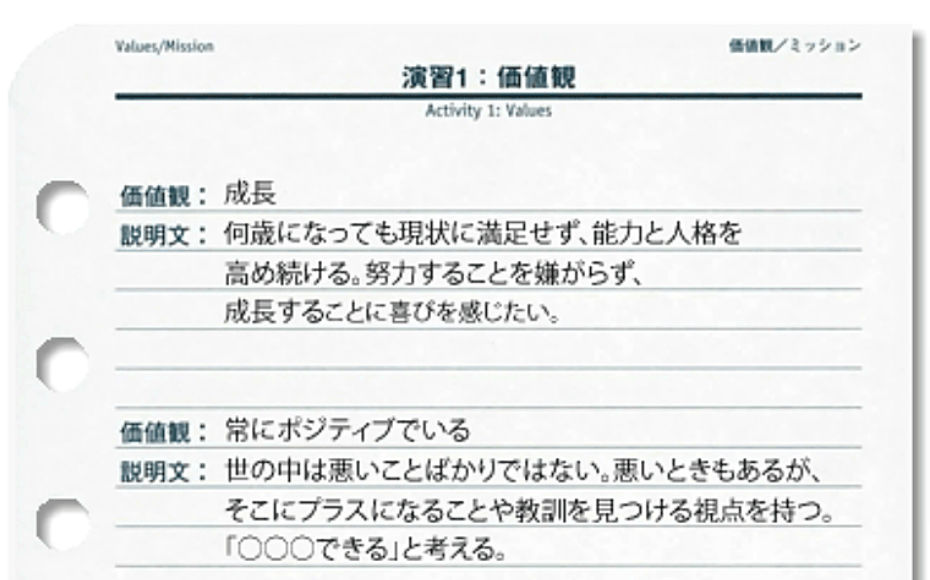 Values/Mission 価値観／ミッション
演習1：価値観
Activity 1: Values
価値観： 成長
説明文： 何歳になっても現状に満足せず、能力と人格を
高め続ける。努力することを嫌がらず、
成長することに喜びを感じたい。
価値観： 常にポジティブでいる
説明文： 世の中は悪いことばかりではない。悪いときもあるが、
そこにプラスになることや教訓を見つける視点を持つ。
「○○○できる」と考える。